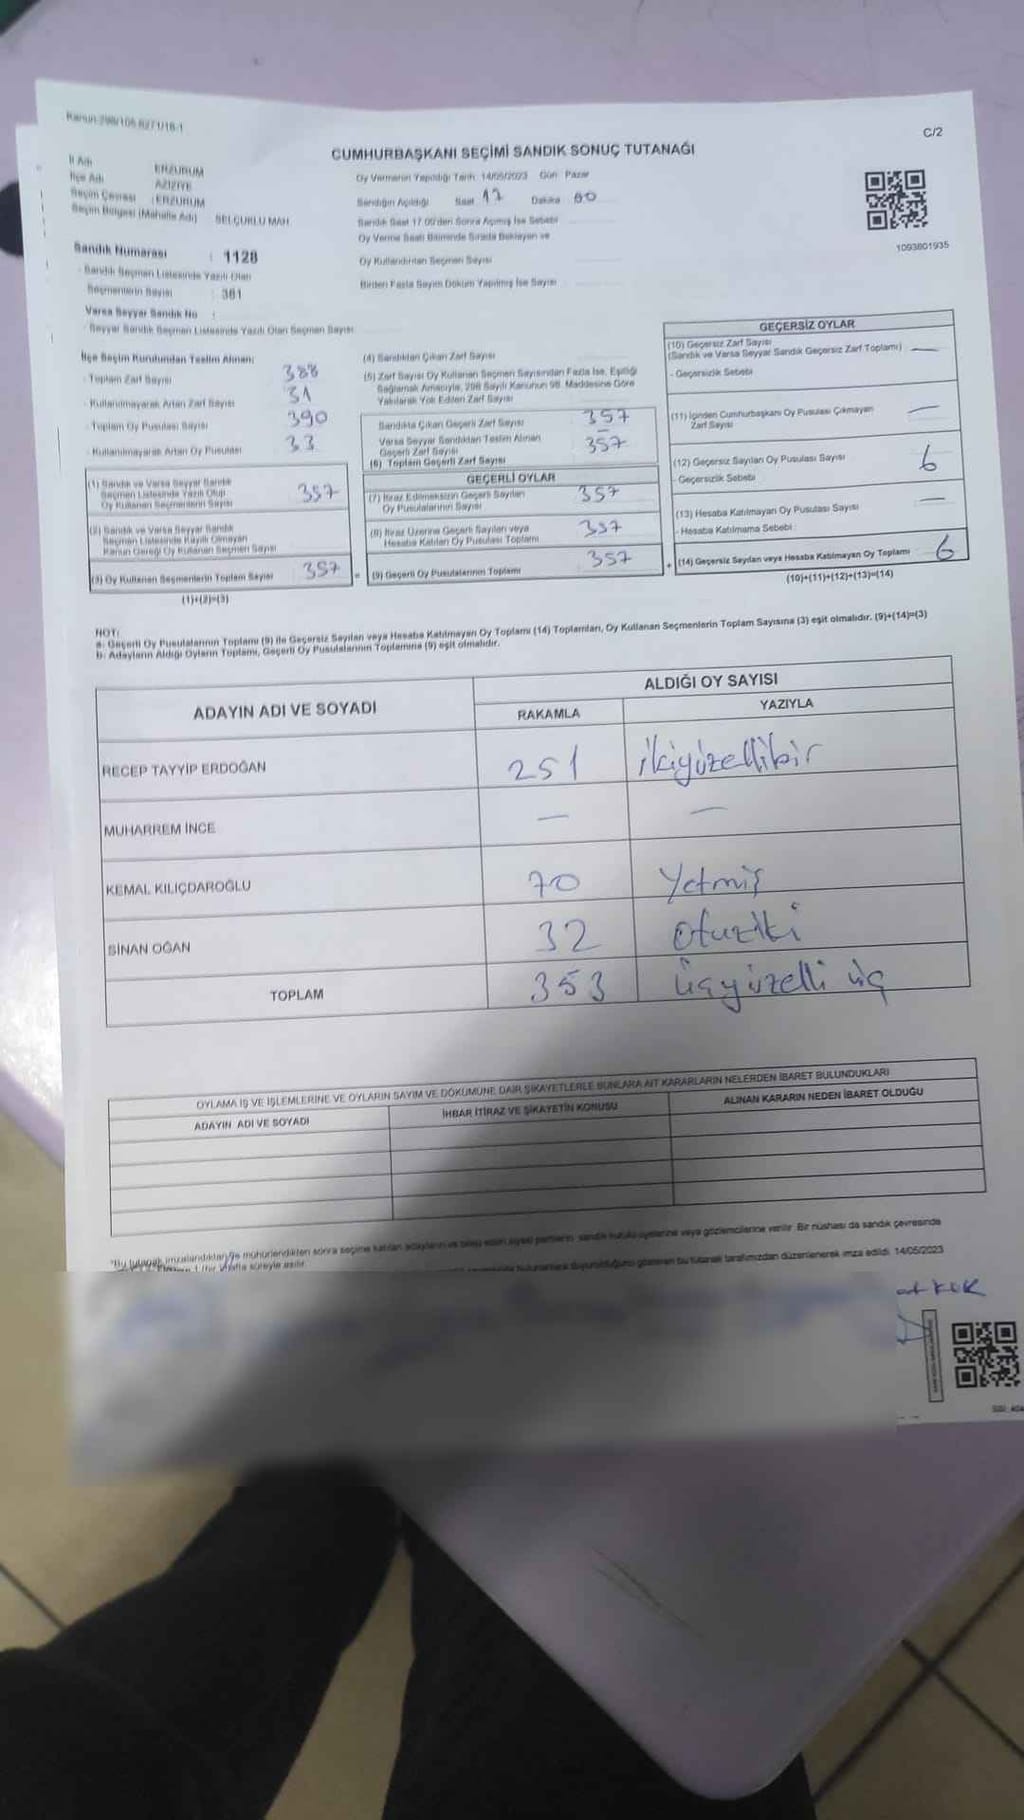 Kanun:298/105-6271/16-1
C/2
CUMHURBAŞKANI SEÇİMİ SANDIK SONUÇ TUTANAĞI
İl Adı ERZURUM
İlçe Adı AZİZİYE
Seçim Çevresi : ERZURUM
Seçim Bölgesi (Mahalle Adı) SELÇUKLU MAH.
Oy Vermenin Yapıldığı Tarih: 14/05/2023 Gün: Pazar
Sandığın Açıldığı Saat 17 Dakika 00
Sandık Saat 17.00'den Sonra Açılmış İse Sebebi
Oy Verme Saati Bitiminde Sırada Bekleyen ve
Oy Kullandırılan Seçmen Sayısı
Birden Fazla Sayım Döküm Yapılmış İse Sayısı
1093801935
Sandık Numarası : 1128
Sandık Seçmen Listesinde Yazılı Olan
Seçmenlerin Sayısı : 381
Varsa Seyyar Sandık No :
- Seyyar Sandık Seçmen Listesinde Yazılı Olan Seçmen Sayısı
İlçe Seçim Kurulundan Teslim Alınan:
- Toplam Zarf Sayısı 388
- Kullanılmayarak Artan Zarf Sayısı 31
- Toplam Oy Pusulası Sayısı 390
- Kullanılmayarak Artan Oy Pusulası 33
(1) Sandık ve Varsa Seyyar Sandık
Seçmen Listesinde Yazılı Olup
Oy Kullanan Seçmenlerin Sayısı 357
(2) Sandık ve Varsa Seyyar Sandık
Seçmen Listesinde Kayıtlı Olmayan
Kanun Gereği Oy Kullanan Seçmen Sayısı
(3) Oy Kullanan Seçmenlerin Toplam Sayısı 357
(1)+(2)=(3)
(4) Sandıktan Çıkan Zarf Sayısı
(5) Zarf Sayısı Oy Kullanan Seçmen Sayısından Fazla İse, Eşitliği
Sağlamak Amacıyla, 298 Sayılı Kanunun 98. Maddesine Göre
Yakılarak Yok Edilen Zarf Sayısı
Sandıkta Çıkan Geçerli Zarf Sayısı 357
Varsa Seyyar Sandıktan Teslim Alınan
Geçerli Zarf Sayısı —
(6) Toplam Geçerli Zarf Sayısı 357
GEÇERLİ OYLAR
(7) İtiraz Edilmeksizin Geçerli Sayılan
Oy Pusulalarının Sayısı 357
(8) İtiraz Üzerine Geçerli Sayılan veya
Hesaba Katılan Oy Pusulası Toplamı 357
= (9) Geçerli Oy Pusulalarının Toplamı 357
GEÇERSİZ OYLAR
(10) Geçersiz Zarf Sayısı
(Sandık ve Varsa Seyyar Sandık Geçersiz Zarf Toplamı) —
- Geçersizlik Sebebi
(11) İçinden Cumhurbaşkanı Oy Pusulası Çıkmayan
Zarf Sayısı —
(12) Geçersiz Sayılan Oy Pusulası Sayısı 6
- Geçersizlik Sebebi
(13) Hesaba Katılmayan Oy Pusulası Sayısı —
- Hesaba Katılmama Sebebi :
+ (14) Geçersiz Sayılan veya Hesaba Katılmayan Oy Toplamı 6
(10)+(11)+(12)+(13)=(14)
NOT:
a- Geçerli Oy Pusulalarının Toplamı (9) ile Geçersiz Sayılan veya Hesaba Katılmayan Oy Toplamı (14) Toplamları, Oy Kullanan Seçmenlerin Toplam Sayısına (3) eşit olmalıdır. (9)+(14)=(3)
b- Adayların Aldığı Oyların Toplamı, Geçerli Oy Pusulalarının Toplamına (9) eşit olmalıdır.
ADAYIN ADI VE SOYADI ALDIĞI OY SAYISI
RAKAMLA YAZIYLA
RECEP TAYYİP ERDOĞAN 251 ikiyüzellibir
MUHARREM İNCE — —
KEMAL KILIÇDAROĞLU 70 Yetmiş
SİNAN OĞAN 32 otuziki
TOPLAM 353 üçyüzelli üç
OYLAMA İŞ VE İŞLEMLERİNE VE OYLARIN SAYIM VE DÖKÜMÜNE DAİR ŞİKAYETLERLE BUNLARA AİT KARARLARIN NELERDEN İBARET BULUNDUKLARI
ADAYIN ADI VE SOYADI İHBAR İTİRAZ VE ŞİKAYETİN KONUSU ALINAN KARARIN NEDEN İBARET OLDUĞU
sandık kurulu üyelerine veya gözlemcilerine verilir. Bir nüshası da sandık çevresinde
bu tutanak tarafımızdan düzenlenerek imza edildi. 14/05/2023